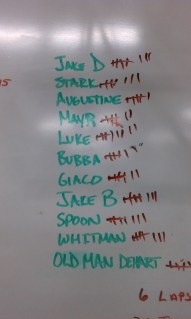 JAKE D
STARK
AUGUSTINE
MAYR
LUKE
BUBBA
GIACO
JAKE B
SPOON
WHITMAN
OLD MAN DEHART
6 LAPS